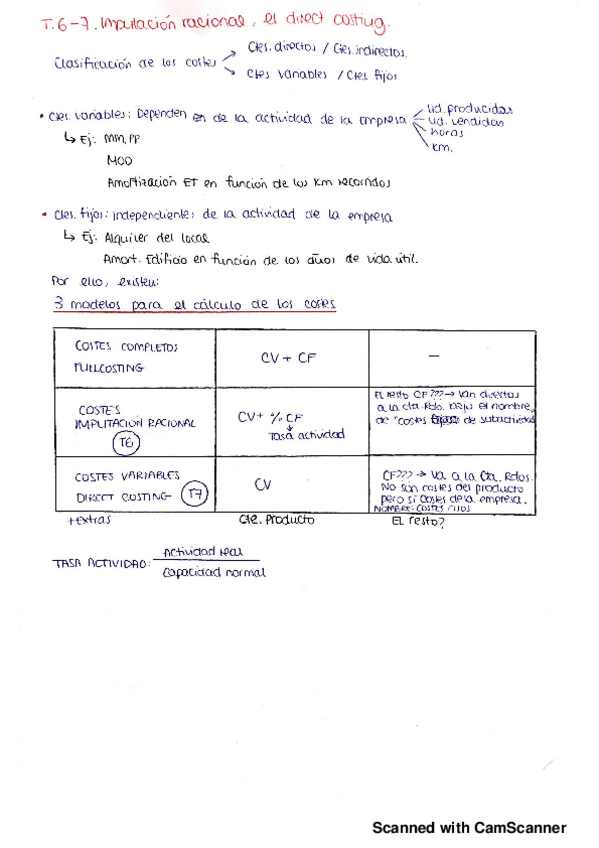 T.6-7. Imputación racional, el direct costing.
Clasificación de los costes
Ctes. directos / Ctes. indirectos.
Ctes variables / Ctes fijos
• Ctes. variables: Dependen en de la actividad de la empresa
ud. producidas
ud. vendidas
horas
km.
↳ Ej: MM.PP
MOD
Amortización ET en función de los km recorridos
• Ctes. fijos: independiente: de la actividad de la empresa
↳ Ej: Alquiler del local
Amort. Edificio en función de los años de vida útil.
Por ello, existen:
3 modelos para el cálculo de los costes
COSTES COMPLETOS
FULLCOSTING
CV + CF
—
COSTES
IMPUTACIÓN RACIONAL
T6
CV + % CF
↓
Tasa actividad
El resto CF??? → Van directos
a la cta. Rdo. bajo el nombre
de "costes de subactividad
COSTES VARIABLES
DIRECT COSTING
T7
CV
CF??? → Va a la Cta. Rdos.
No son costes del producto
pero si costes de la empresa.
NOMBRE: COSTES FIJOS
+extras
Cte. Producto
El resto?
TASA ACTIVIDAD: Actividad real
Capacidad normal
Scanned with CamScanner